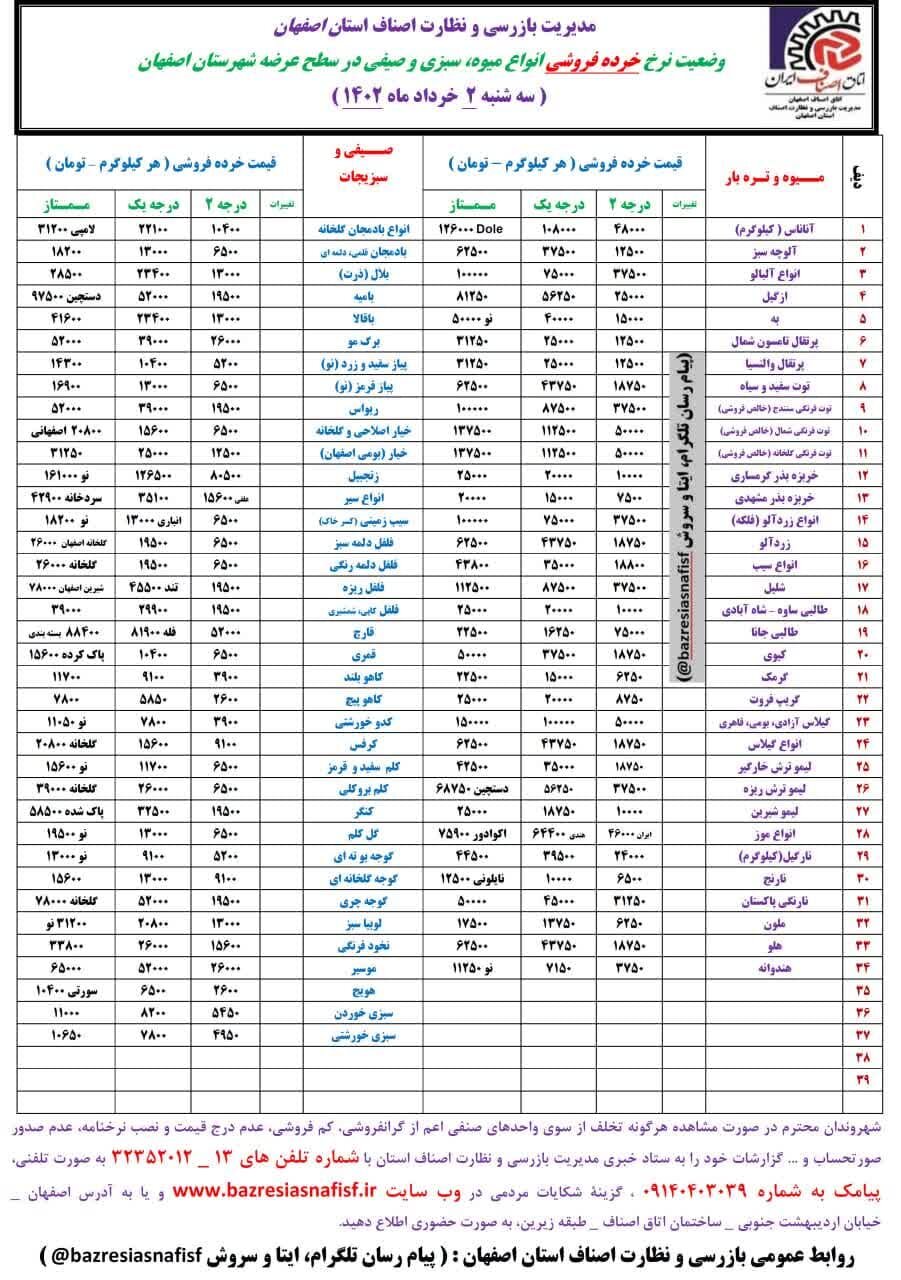 مدیریت بازرسی و نظارت اصناف استان اصفهان
وضعیت نرخ خرده فروشی انواع میوه، سبزی و صیفی در سطح عرضه شهرستان اصفهان
( سه شنبه ۲ خرداد ماه ۱۴۰۲ )
اتاق اصناف ایران
اتاق اصناف اصفهان
مدیریت بازرسی و نظارت اصناف
استان اصفهان
ردیف میـوه و تـره بار قیمت خرده فروشی ( هر کیلوگرم – تومان ) صـیفی و سبزیجات قیمت خرده فروشی ( هر کیلوگرم - تومان )
تغییرات درجه ۲ درجه یک ممـتاز تغییرات درجه ۲ درجه یک ممـتاز
۱ آناناس ( کیلوگرم) ۴۸۰۰۰ ۱۰۸۰۰۰ ۱۲۶۰۰۰ Dole انواع بادمجان گلخانه ۱۰۴۰۰ ۲۲۱۰۰ لامپی ۳۱۲۰۰
۲ آلوچه سبز ۱۲۵۰۰ ۳۷۵۰۰ ۶۲۵۰۰ بادمجان قلمی، دلمه ای ۶۵۰۰ ۱۳۰۰۰ ۱۸۲۰۰
۳ انواع آلبالو ۳۷۵۰۰ ۷۵۰۰۰ ۱۰۰۰۰۰ بلال (ذرت) ۱۳۰۰۰ ۲۳۴۰۰ ۲۸۵۰۰
۴ ازگیل ۲۵۰۰۰ ۵۶۲۵۰ ۸۱۲۵۰ بامیه ۱۹۵۰۰ ۵۲۰۰۰ دستچین ۹۷۵۰۰
۵ به ۱۵۰۰۰ ۴۰۰۰۰ نو ۵۰۰۰۰ باقالا ۱۳۰۰۰ ۲۳۴۰۰ ۴۱۶۰۰
۶ پرتقال تامسون شمال ۱۲۵۰۰ ۲۵۰۰۰ ۳۱۲۵۰ برگ مو ۲۶۰۰۰ ۳۹۰۰۰ ۵۲۰۰۰
۷ پرتقال والنسیا ۱۲۵۰۰ ۲۵۰۰۰ ۳۱۲۵۰ پیاز سفید و زرد (نو) ۵۲۰۰ ۱۰۴۰۰ ۱۴۳۰۰
۸ توت سفید و سیاه ۱۸۷۵۰ ۴۳۷۵۰ ۶۲۵۰۰ پیاز قرمز (نو) ۶۵۰۰ ۱۳۰۰۰ ۱۶۹۰۰
۹ توت فرنگی سنندج (خالص فروشی) ۳۷۵۰۰ ۸۷۵۰۰ ۱۰۰۰۰۰ ریواس ۱۹۵۰۰ ۳۹۰۰۰ ۵۲۰۰۰
۱۰ توت فرنگی شمال (خالص فروشی) ۵۰۰۰۰ ۱۱۲۵۰۰ ۱۳۷۵۰۰ خیار اصلاحی و گلخانه ۶۵۰۰ ۱۵۶۰۰ ۲۰۸۰۰ اصفهانی
۱۱ توت فرنگی گلخانه (خالص فروشی) ۵۰۰۰۰ ۱۱۲۵۰۰ ۱۳۷۵۰۰ خیار (بومی اصفهان) ۱۲۵۰۰ ۲۵۰۰۰ ۳۱۲۵۰
۱۲ خربزه بذر گرمساری ۱۰۰۰۰ ۲۰۰۰۰ ۲۵۰۰۰ زنجبیل ۸۰۵۰۰ ۱۲۶۵۰۰ نو ۱۶۱۰۰۰
۱۳ خربزه بذر مشهدی ۷۵۰۰ ۱۵۰۰۰ ۲۰۰۰۰ انواع سیر ۱۵۶۰۰ ۳۵۱۰۰ سردخانه ۴۲۹۰۰
۱۴ انواع زردآلو (فلکه) ۳۷۵۰۰ ۷۵۰۰۰ ۱۰۰۰۰۰ سیب زمینی (کسر خاک) ۶۵۰۰ انباری ۱۳۰۰۰ نو ۱۸۲۰۰
۱۵ زردآلو ۱۸۷۵۰ ۴۳۷۵۰ ۶۲۵۰۰ فلفل دلمه سبز ۶۵۰۰ ۱۹۵۰۰ گلخانه اصفهان ۲۶۰۰۰
۱۶ انواع سیب ۱۸۸۰۰ ۳۵۰۰۰ ۴۳۸۰۰ فلفل دلمه رنگی ۶۵۰۰ ۱۹۵۰۰ گلخانه ۲۶۰۰۰
۱۷ شلیل ۳۷۵۰۰ ۸۷۵۰۰ ۱۱۲۵۰۰ فلفل ریزه ۱۹۵۰۰ تند ۴۵۵۰۰ شیرین اصفهان ۷۸۰۰۰
۱۸ طالبی ساوه - شاه آبادی ۱۰۰۰۰ ۲۰۰۰۰ ۲۵۰۰۰ فلفل کاپی، شمشیری ۱۹۵۰۰ ۲۹۹۰۰ ۳۹۰۰۰
۱۹ طالبی جانا ۷۵۰۰۰ ۱۶۲۵۰ ۲۲۵۰۰ قارچ ۵۲۰۰۰ فله ۸۱۹۰۰ ۸۸۴۰۰ بسته بندی
۲۰ کیوی ۱۸۷۵۰ ۳۷۵۰۰ ۵۰۰۰۰ قمری ۶۵۰۰ ۱۰۴۰۰ پاک کرده ۱۵۶۰۰
۲۱ گرمک ۶۲۵۰ ۱۵۰۰۰ ۲۲۵۰۰ کاهو بلند ۳۹۰۰ ۹۱۰۰ ۱۱۷۰۰
۲۲ گریپ فروت ۸۷۵۰ ۲۰۰۰۰ ۲۵۰۰۰ کاهو پیچ ۲۶۰۰ ۵۸۵۰ ۷۸۰۰
۲۳ گیلاس آزادی، بومی، قاهری ۵۰۰۰۰ ۱۰۰۰۰۰ ۱۵۰۰۰۰ کدو خورشتی ۳۹۰۰ ۷۸۰۰ نو ۱۱۰۵۰
۲۴ انواع گیلاس ۱۸۷۵۰ ۴۳۷۵۰ ۶۲۵۰۰ کرفس ۹۱۰۰ ۱۵۶۰۰ گلخانه ۲۰۸۰۰
۲۵ لیمو ترش خارگیر ۱۸۷۵۰ ۳۵۰۰۰ ۴۲۵۰۰ کلم سفید و قرمز ۶۵۰۰ ۱۱۷۰۰ نو ۱۵۶۰۰
۲۶ لیمو ترش ریزه ۳۷۵۰۰ ۵۶۲۵۰ دستچین ۶۸۷۵۰ کلم بروکلی ۶۵۰۰ ۲۶۰۰۰ گلخانه ۳۹۰۰۰
۲۷ لیمو شیرین ۱۰۰۰۰ ۱۸۷۵۰ ۲۵۰۰۰ کنگر ۱۹۵۰۰ ۳۲۵۰۰ پاک شده ۵۸۵۰۰
۲۸ انواع موز ایران ۴۶۰۰۰ هندی ۶۴۴۰۰ اکوادور ۷۵۹۰۰ گل کلم ۶۵۰۰ ۱۳۰۰۰ نو ۱۹۵۰۰
۲۹ نارگیل(کیلوگرم) ۲۴۰۰۰ ۳۹۵۰۰ ۴۴۵۰۰ گوجه بوته ای ۵۲۰۰ ۹۱۰۰ نو ۱۳۰۰۰
۳۰ نارنج ۶۵۰۰ ۱۰۰۰۰ نایلونی ۱۲۵۰۰ گوجه گلخانه ای ۹۱۰۰ ۱۳۰۰۰ ۱۵۶۰۰
۳۱ نارنگی پاکستان ۳۱۲۵۰ ۴۵۰۰۰ ۵۰۰۰۰ گوجه چری ۱۹۵۰۰ ۵۲۰۰۰ گلخانه ۷۸۰۰۰
۳۲ ملون ۶۲۵۰ ۱۳۷۵۰ ۱۷۵۰۰ لوبیا سبز ۱۳۰۰۰ ۲۰۸۰۰ ۳۱۲۰۰ نو
۳۳ هلو ۱۸۷۵۰ ۴۳۷۵۰ ۶۲۵۰۰ نخود فرنگی ۱۵۶۰۰ ۲۶۰۰۰ ۳۳۸۰۰
۳۴ هندوانه ۳۷۵۰ ۷۱۵۰ نو ۱۱۲۵۰ موسیر ۲۶۰۰۰ ۵۲۰۰۰ ۶۵۰۰۰
۳۵ هویج ۲۶۰۰ ۶۵۰۰ سورتی ۱۰۴۰۰
۳۶ سبزی خوردن ۵۴۵۰ ۸۲۰۰ ۱۱۰۰۰
۳۷ سبزی خورشتی ۴۹۵۰ ۷۸۰۰ ۱۰۶۵۰
۳۸
۳۹
(پیام رسان تلگرام، ایتا و سروش bazresiasnafisf@)
شهروندان محترم در صورت مشاهده هرگونه تخلف از سوی واحدهای صنفی اعم از گرانفروشی، کم فروشی، عدم درج قیمت و نصب نرخنامه، عدم صدور
صورتحساب و ... گزارشات خود را به ستاد خبری مدیریت بازرسی و نظارت اصناف استان با شماره تلفن های ۱۳ _ ۳۲۳۵۲۰۱۲ به صورت تلفنی،
پیامک به شماره ۰۹۱۴۰۴۰۳۰۳۹ ، گزینۀ شکایات مردمی در وب سایت www.bazresiasnafisf.ir و یا به آدرس اصفهان _
خیابان اردیبهشت جنوبی _ ساختمان اتاق اصناف _ طبقه زیرین، به صورت حضوری اطلاع دهید.
روابط عمومی بازرسی و نظارت اصناف استان اصفهان : ( پیام رسان تلگرام، ایتا و سروش bazresiasnafisf@ )